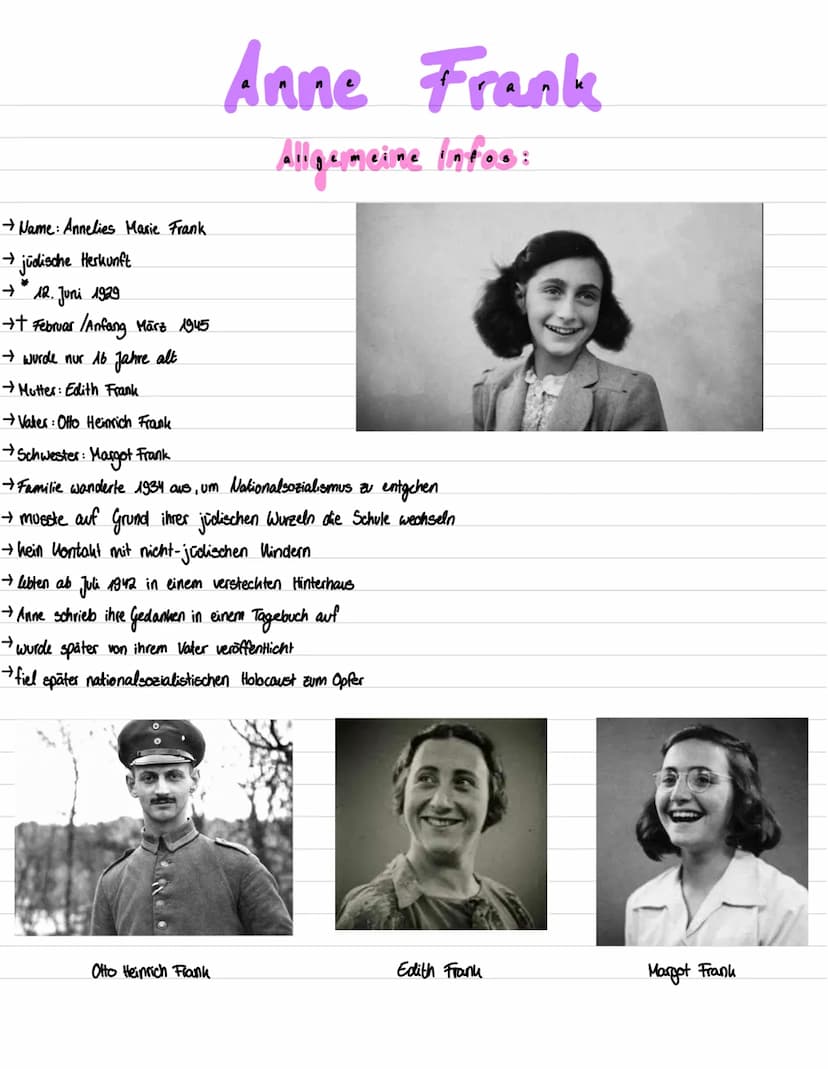 Anne Frank
Allgemeine Infos:
→ Name: Annelies Marie Frank
→ jüdische Herkunft
→ * 12. Juni 1929
→ † Februar / Anfang März 1945
→ wurde nur 16 Jahre alt
→ Mutter: Edith Frank
→ Vater: Otto Heinrich Frank
→ Schwester: Margot Frank
→ Familie wanderte 1934 aus, um Nationalsozialismus zu entgehen
→ musste auf Grund ihrer jüdischen Wurzeln die Schule wechseln
→ kein Kontakt mit nicht-jüdischen Kindern
→ lebten ab Juli 1942 in einem versteckten Hinterhaus
→ Anne schrieb ihre Gedanken in einem Tagebuch auf
→ wurde später von ihrem Vater veröffentlicht
→ fiel später nationalsozialistischen Holocaust zum Opfer
Otto Heinrich Frank Edith Frank Margot Frank